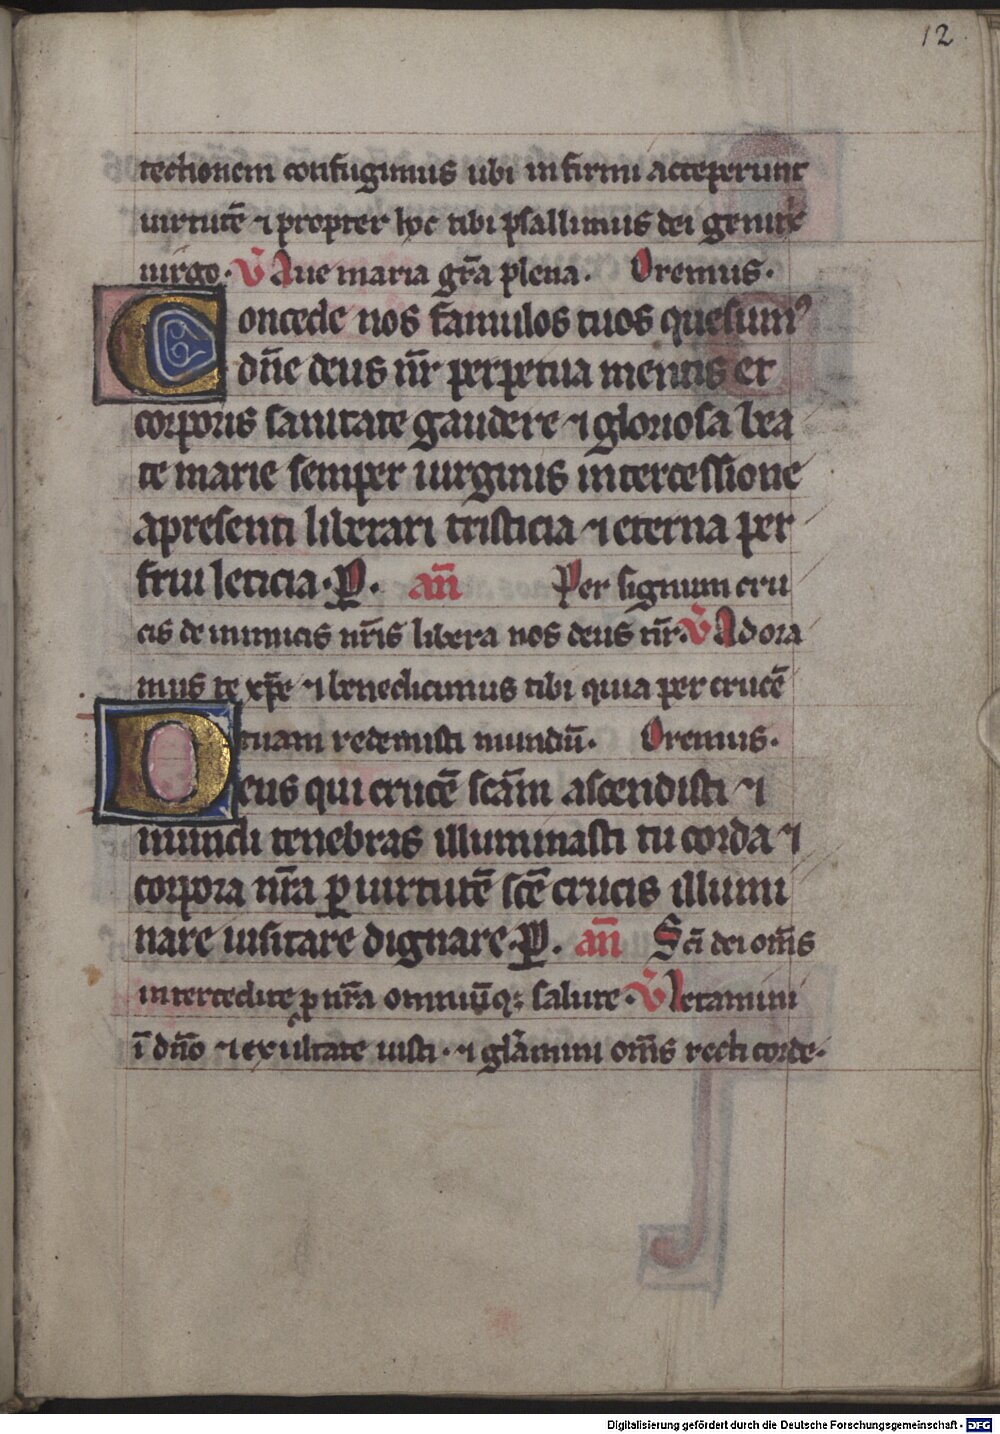 12
tectionem confugimus ubi infirmi acceperunt
uirtutē ⁊ propter hoc tibi psallimus dei genitͥx
uirgo. V̄ Aue maria gr̄a plena. Oremus.
Concede nos famulos tuos quesumꝰ
dn̄e deus nr̄ perpetua mentis et
corporis sanitate gaudere ⁊ gloriosa bea
te marie semper uirginis intercessione
apresenti liberari tristicia ⁊ eterna per
frui leticia. P. an̄ Per signum cru
cis de inimicis nr̄is libera nos deus nr̄. V̄ Adora
mus te xp̄e ⁊ benedicimus tibi quia per crucē
tuam redemisti mundū. Oremus.
Deus qui crucē scām ascendisti ⁊
mundi tenebras illuminasti tu corda ⁊
corpora nr̄a ꝑ uirtutē scē crucis illumi
nare uisitare dignare. P. an̄ Scī dei om̄s
intercedite ꝓ nr̄a omniūqꝫ salute. V̄ Letamini
ī dn̄o ⁊ exultate iusti. ⁊ glāmini om̄s recti corde.
Digitalisierung gefördert durch die Deutsche Forschungsgemeinschaft - DFG